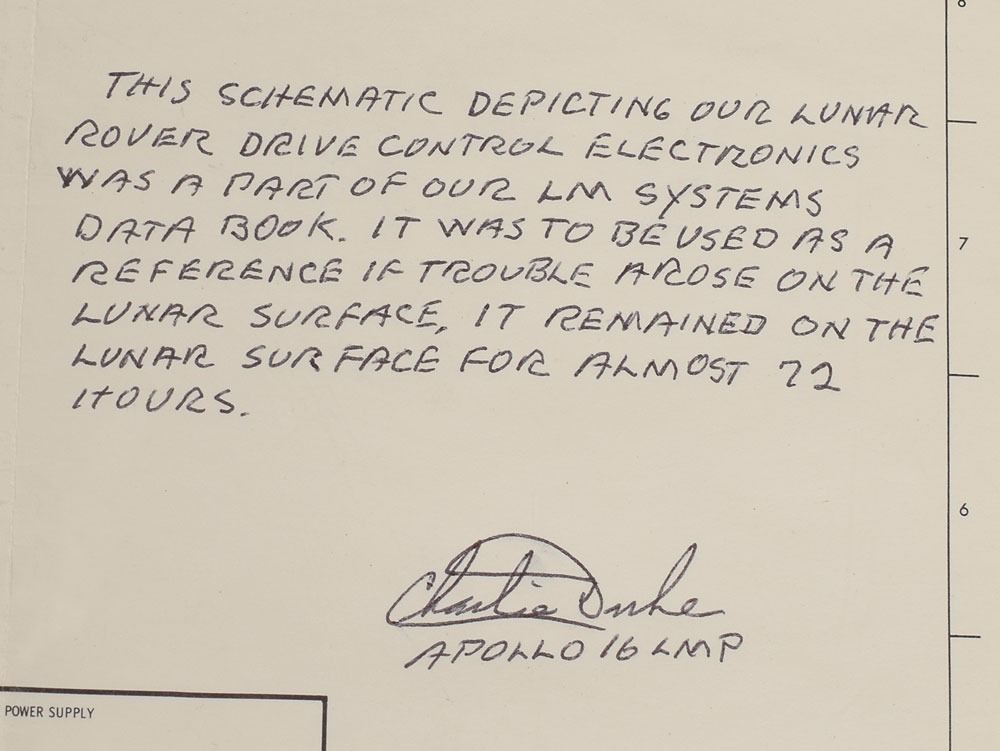 8
THIS SCHEMATIC DEPICTING OUR LUNAR
ROVER DRIVE CONTROL ELECTRONICS
WAS A PART OF OUR LM SYSTEMS
DATA BOOK. IT WAS TO BE USED AS A
7
REFERENCE IF TROUBLE AROSE ON THE
LUNAR SURFACE. IT REMAINED ON THE
LUNAR SURFACE FOR ALMOST 72
HOURS.
6
Charlie Duke
APOLLO 16 LMP
POWER SUPPLY